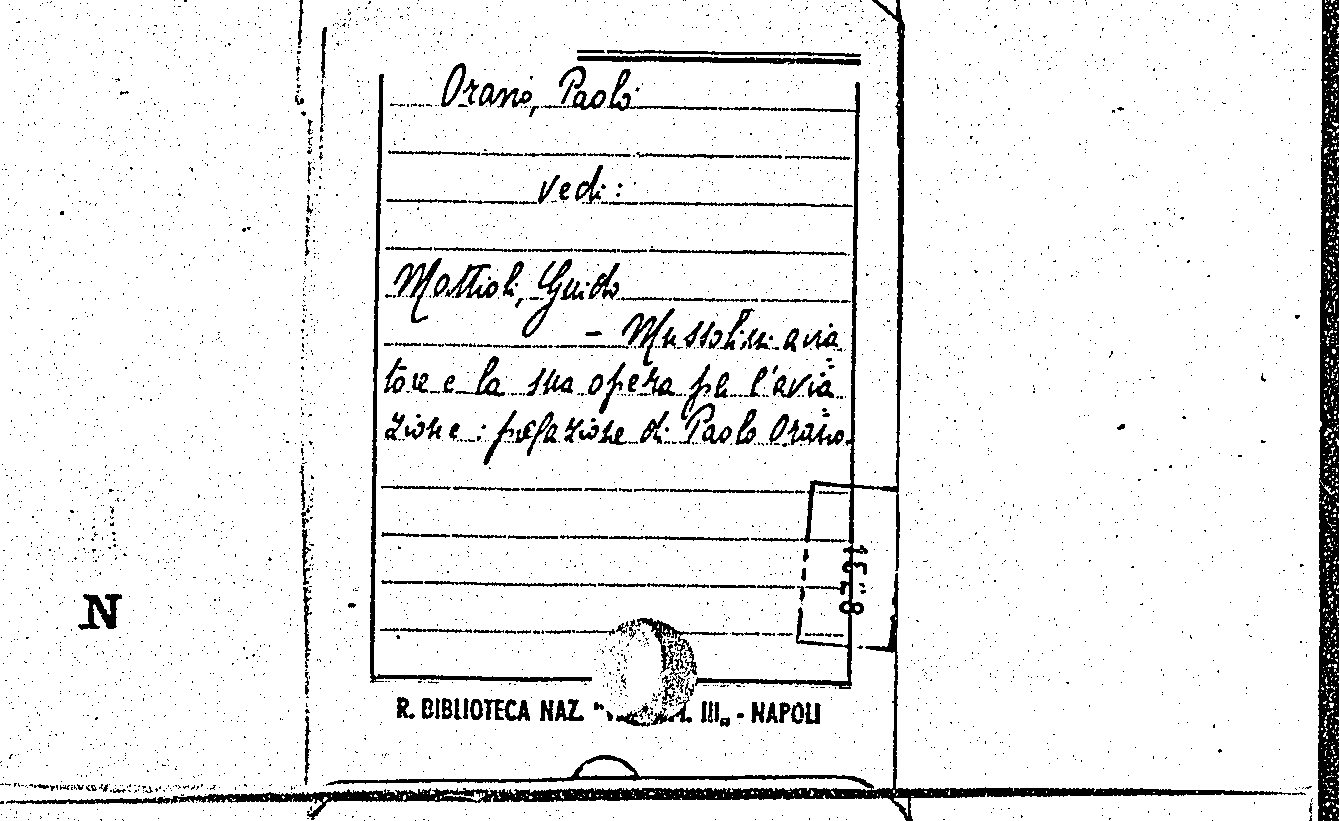 Orano, Paolo
vedi:
Mattioli, Guido
- Mussolini avia
tore e la sua opera per l'avia
zione: prefazione di Paolo Orano.
N
R. BIBLIOTECA NAZ. " III„ - NAPOLI